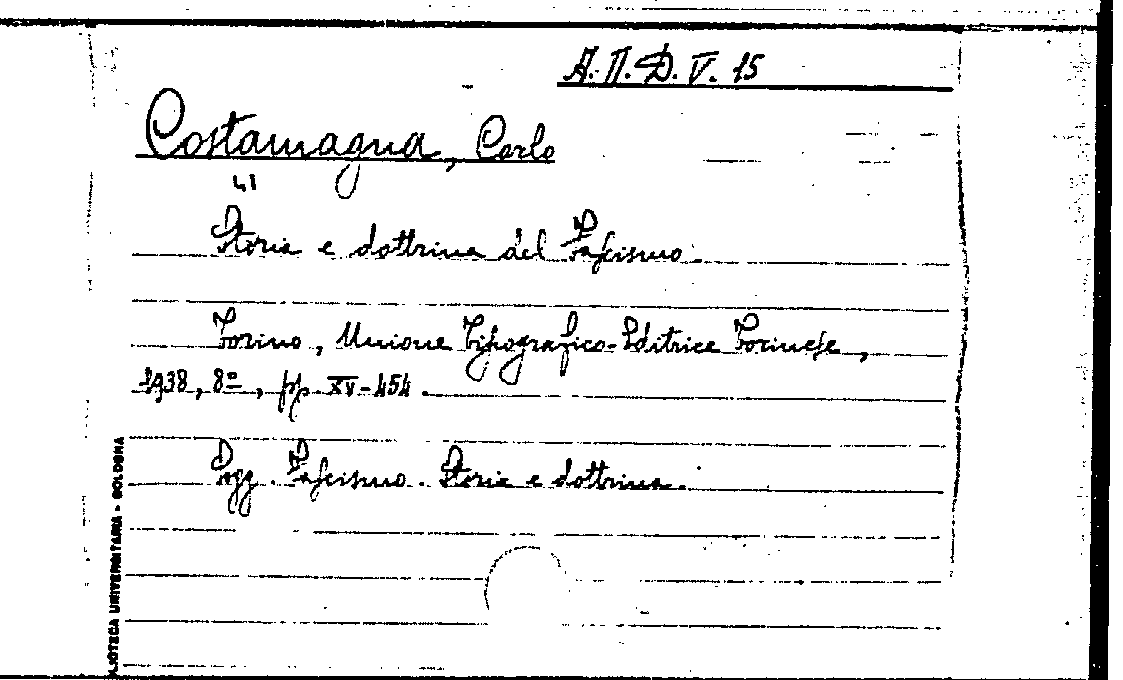 A.П.D.V. 15
Costamagna, Carlo
41
Storia e dottrina del Fascismo.
Torino, Unione Tipografico-Editrice Torinese,
1938, 8º, pp. XV-454.
Sogg. Fascismo. Storia e dottrina.
BIBLIOTECA UNIVERSITARIA - BOLOGNA